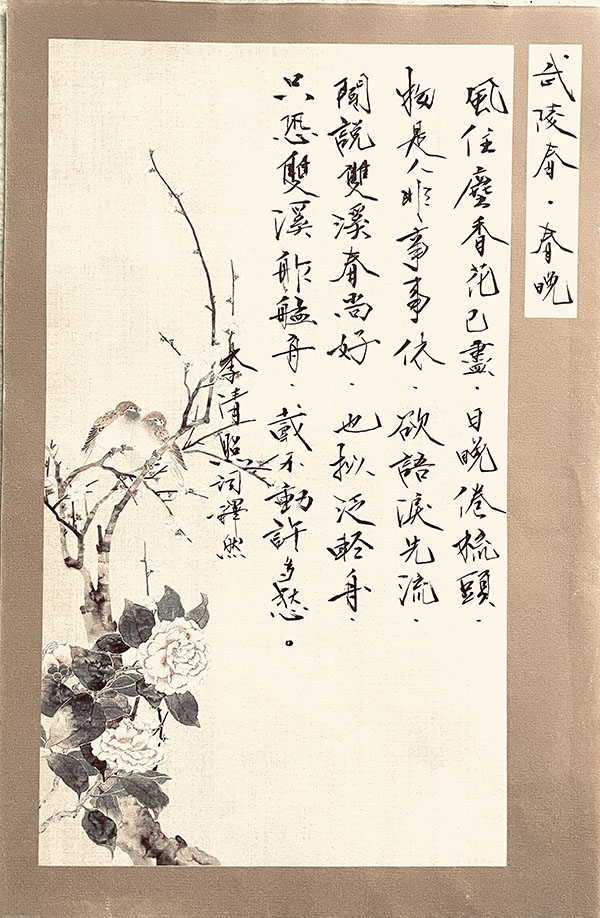 武陵春·春晚
風住塵香花已盡·日晚倦梳頭·
物是人非事事休·欲語淚先流·
聞說雙溪春尚好·也拟泛輕舟·
只恐雙溪舴艋舟·載不動許多愁。
李清照詞釋然